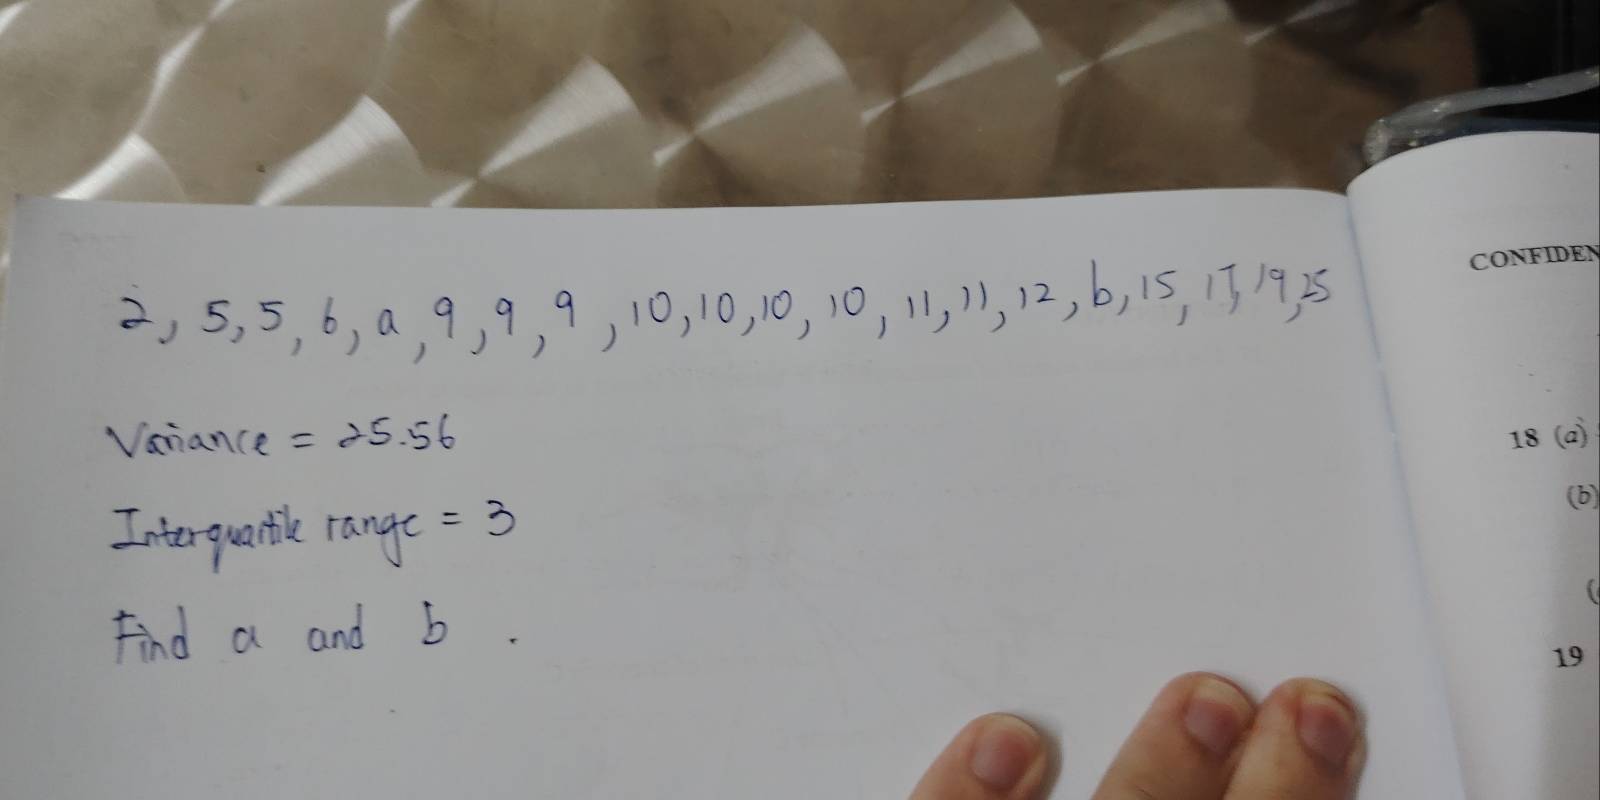 2, 5, 5, 6, a, 9, 9, 9, 10, 10, 10, 10, 11, 11, 12, b, 15, 17, 19, 25
Variance = 25.56
Interquartile range = 3
Find a and b .
CONFIDEN
18 (a)
(b)
19